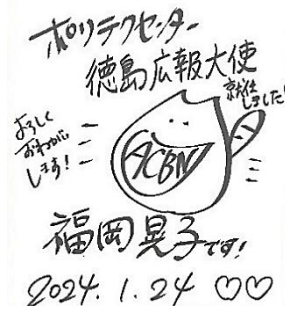 ポリテクセンター
徳島広報大使
就任
しました!
よろしく
おねがい
します!
ACBN
福岡晃子です!
2024.1.24 ♡♡